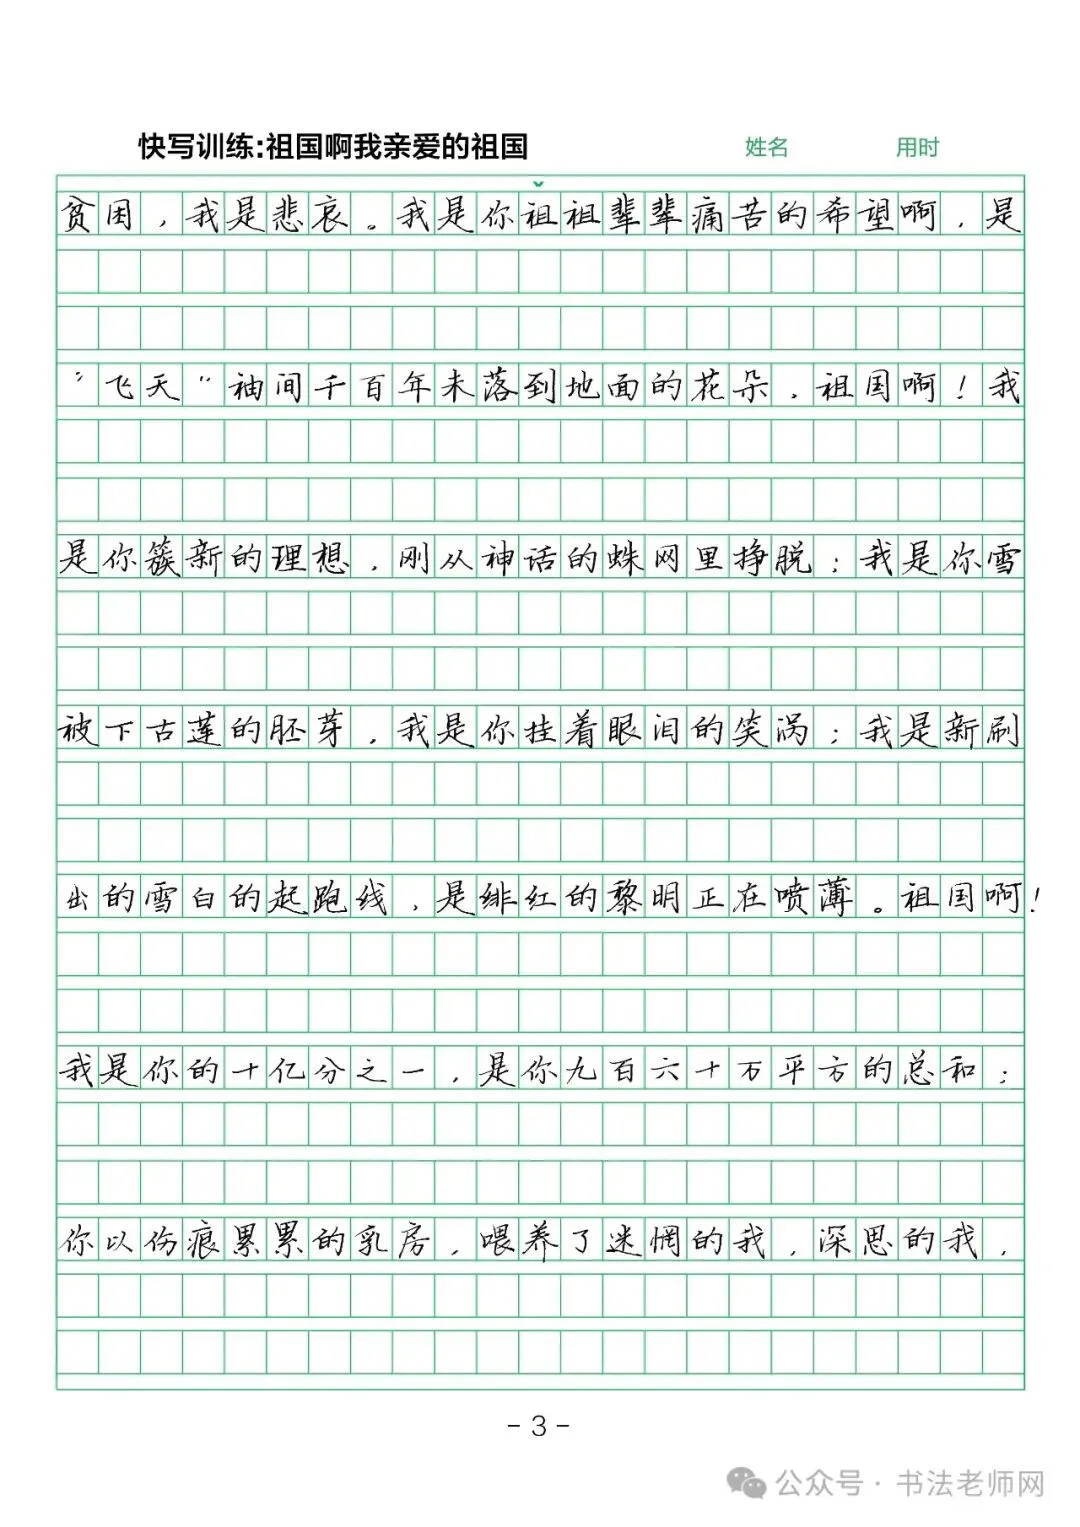 快写训练:祖国啊我亲爱的祖国 姓名 用时
贫困，我是悲哀。我是你祖祖辈辈痛苦的希望啊，是
“飞天”袖间千百年未落到地面的花朵，祖国啊！我
是你簇新的理想，刚从神话的蛛网里挣脱；我是你雪
被下古莲的胚芽，我是你挂着眼泪的笑涡；我是新刷
出的雪白的起跑线，是绯红的黎明正在喷薄。祖国啊！
我是你的十亿分之一，是你九百六十万平方的总和；
你以伤痕累累的乳房，喂养了迷惘的我，深思的我，
- 3 -
公众号·书法老师网